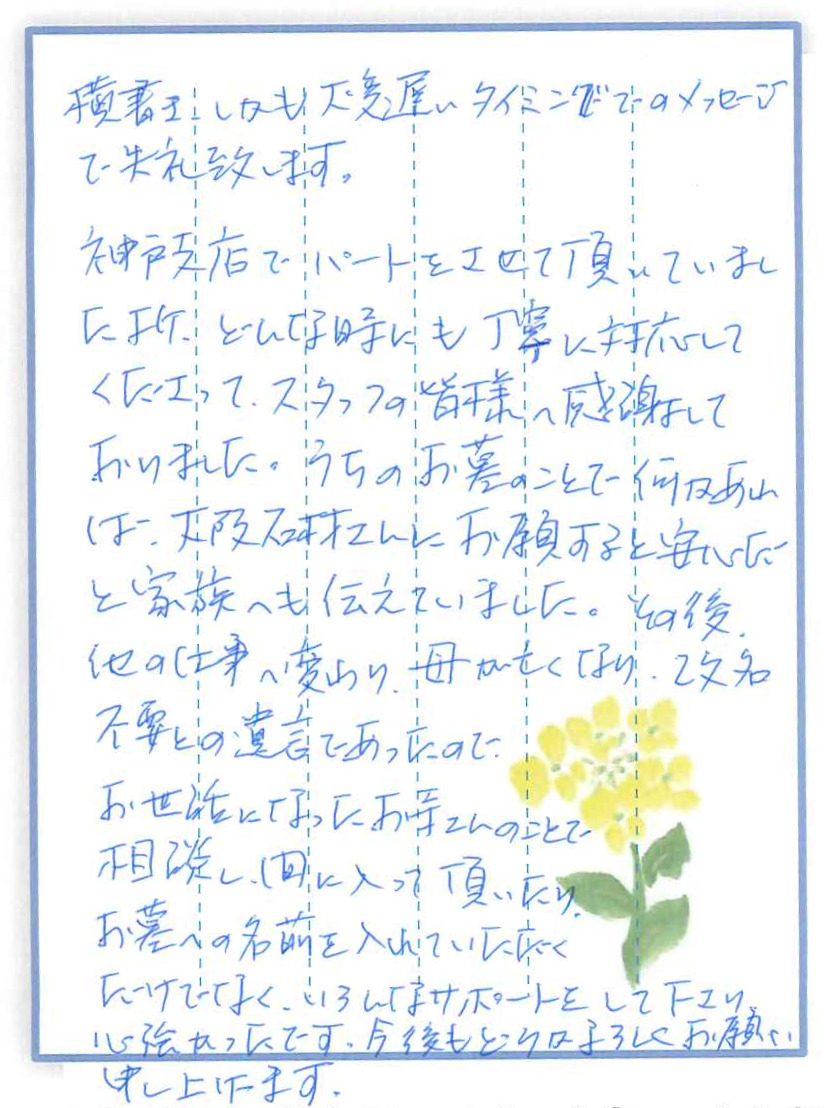 横書き、しかも大変遅いタイミングでのメッセージ
で失礼致します。
神戸支店でパートをさせて頂いていまし
たが、どんな時にも丁寧に対応して
くださって、スタッフの皆様へ感謝して
おりました。うちのお墓のことで何かあれ
ば、大阪石材さんにお願すると安心だ
と家族へも伝えていました。その後、
他の仕事へ変わり、母が亡くなり、改名
不要との遺言であったので、
お世話になったお寺さんのことで
相談し、間に入って頂いたり、
お墓への名前を入れていただく
だけでなく、いろんなサポートをして下さり、
心強かったです。今後もどうかよろしくお願い
申し上げます。